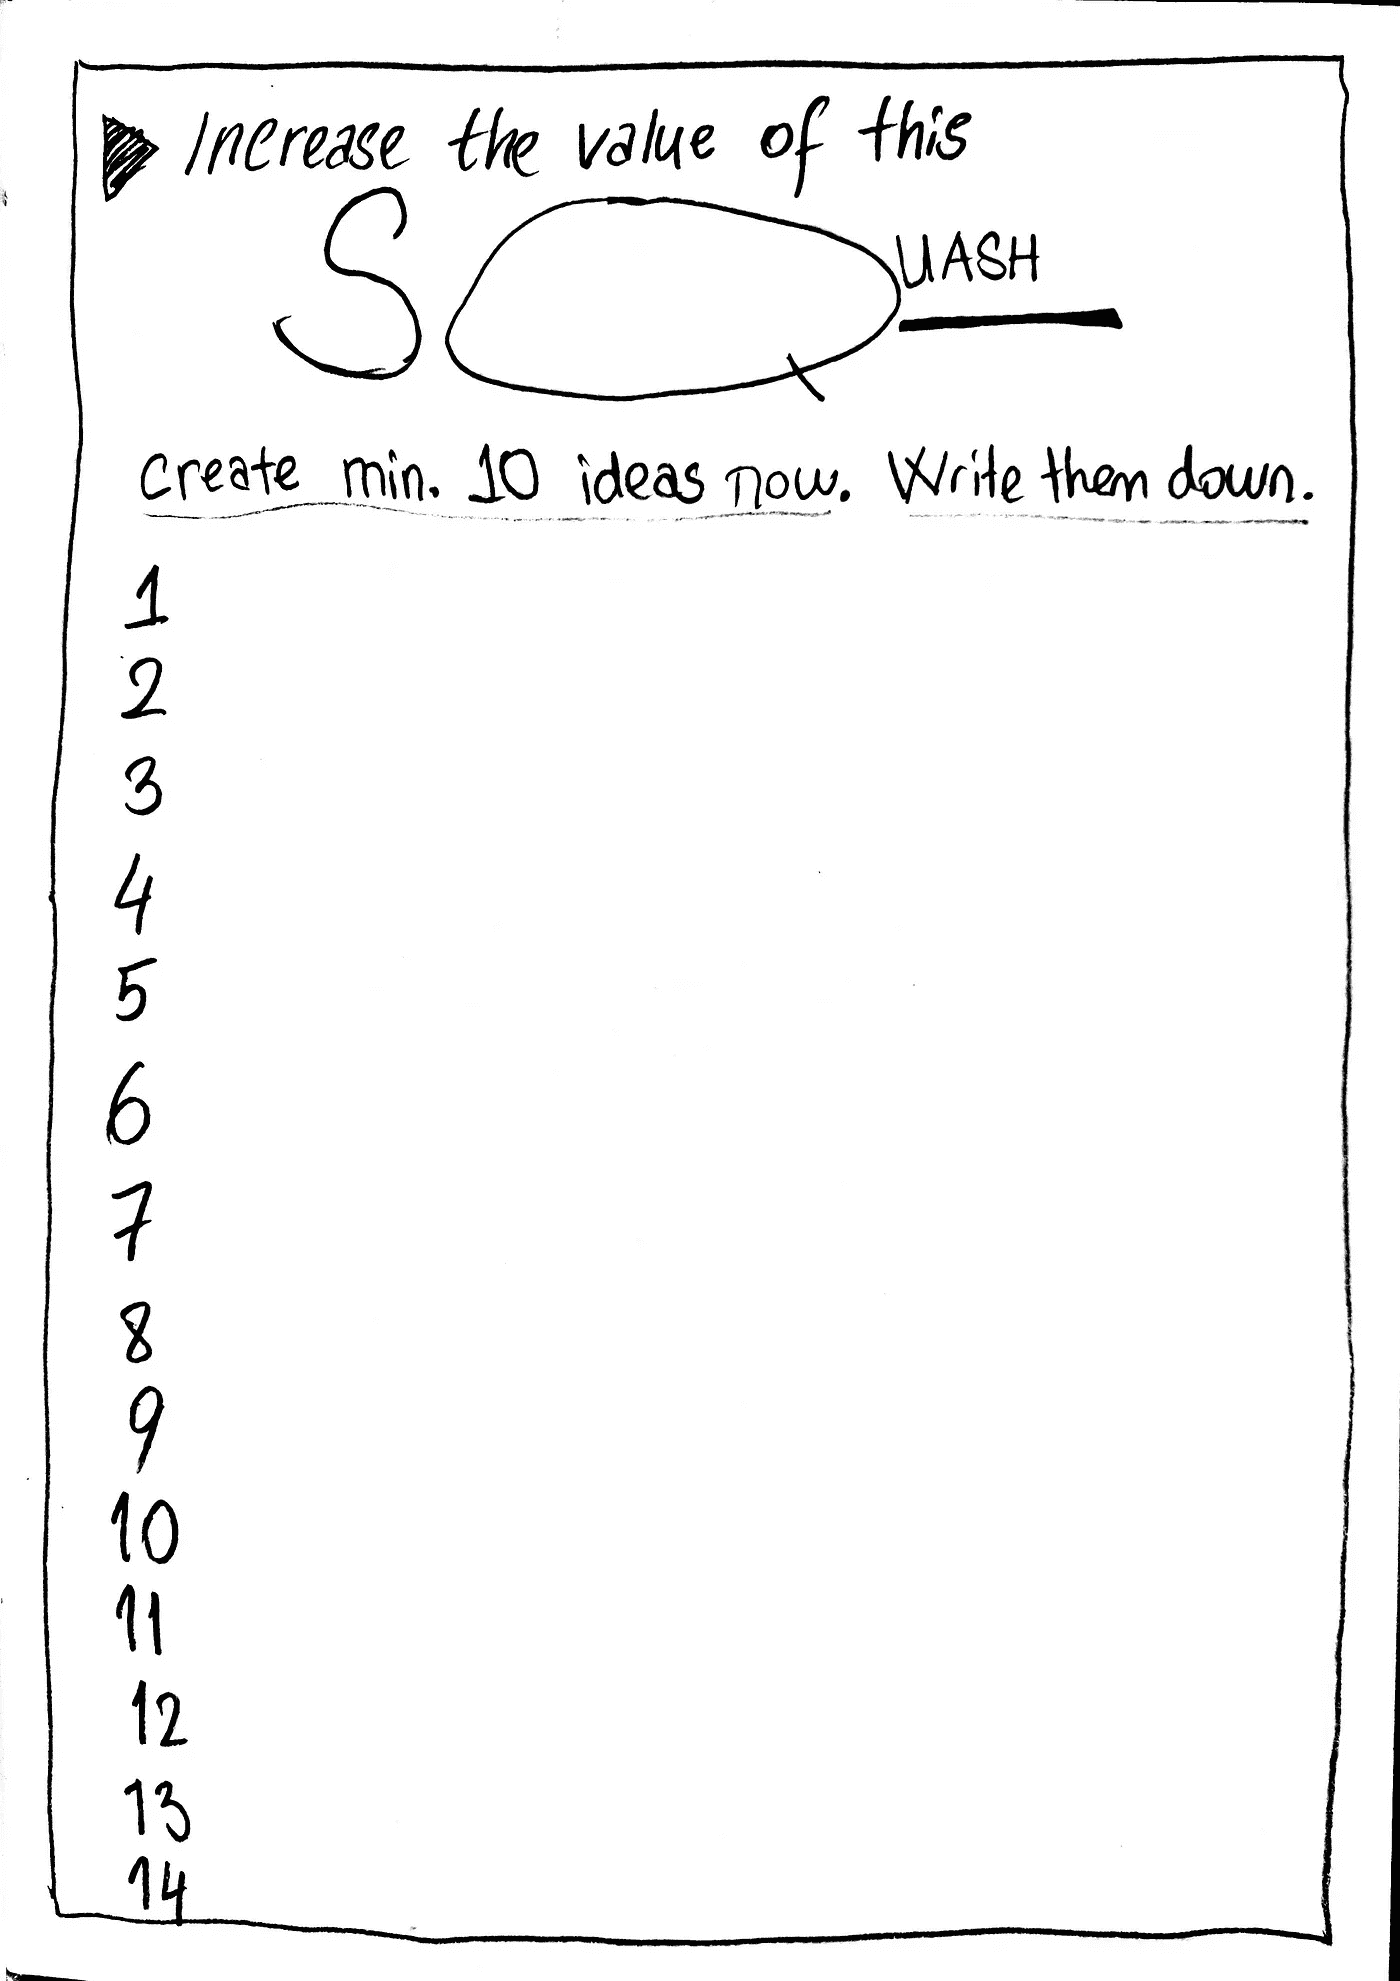 Increase the value of this
SQUASH
Create min. 10 ideas now. Write them down.
1
2
3
4
5
6
7
8
9
10
11
12
13
14